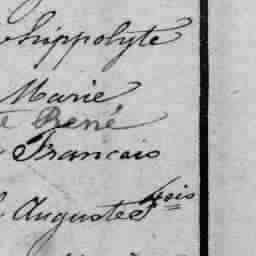 hippolyte
Marie
René
Francois
Auguste